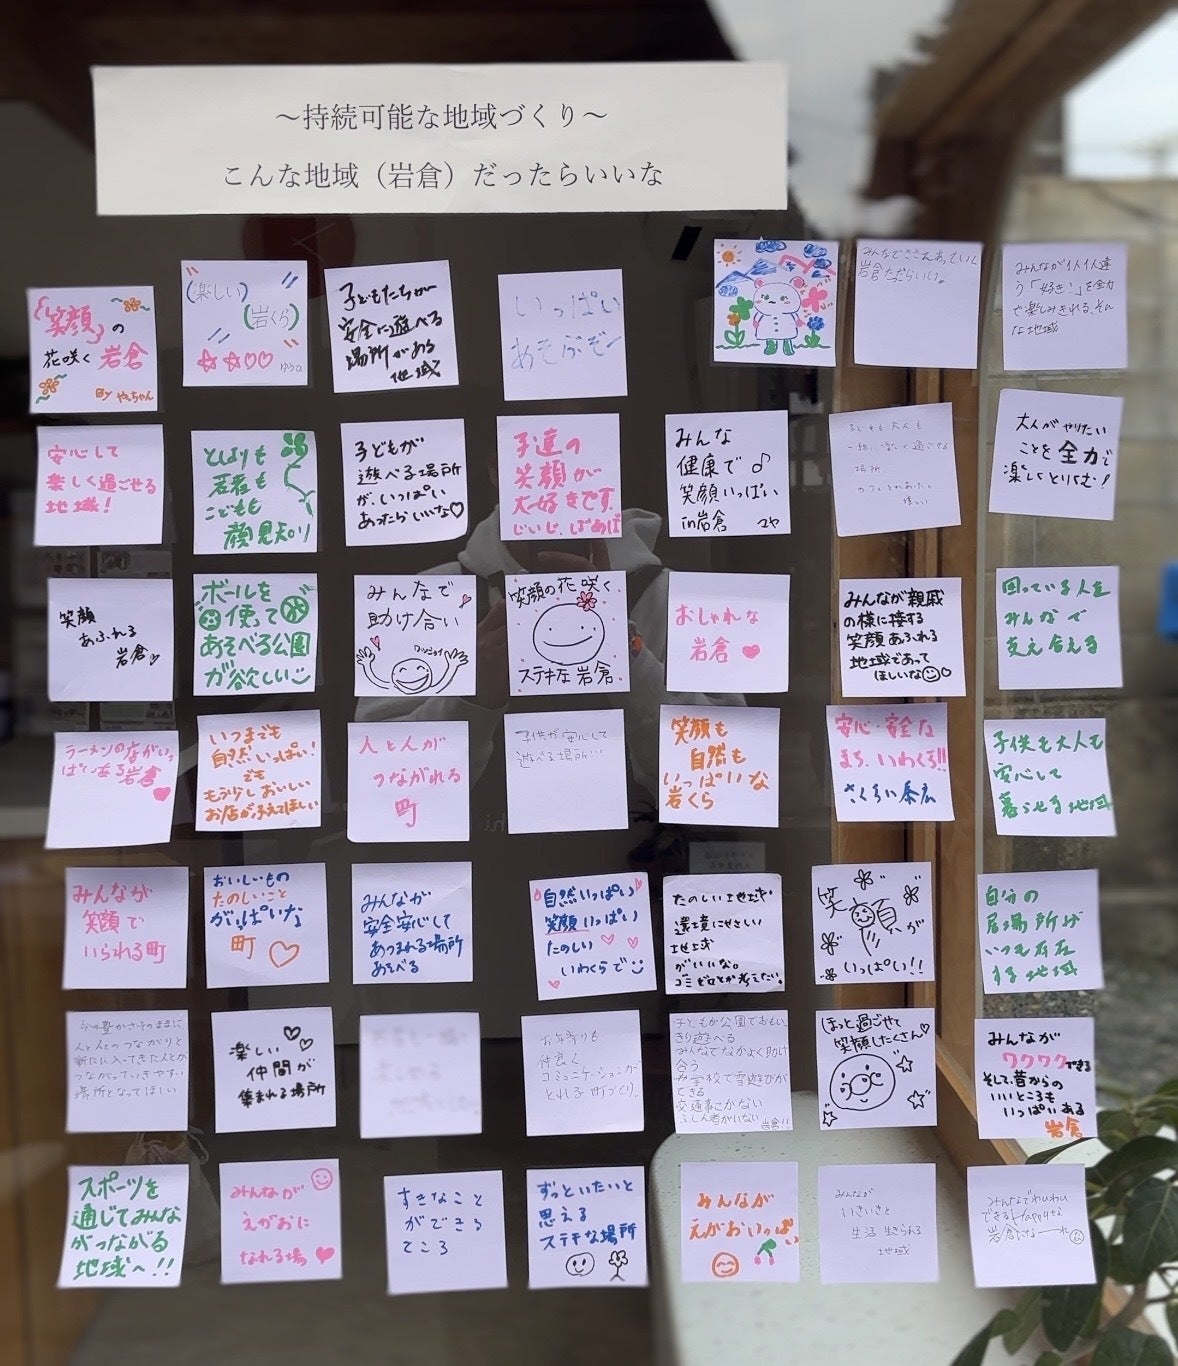 ～持続可能な地域づくり～
こんな地域（岩倉）だったらいいな
「笑顔」の
花咲く 岩倉
By やっちゃん
(楽しい)
(岩くら)
☆☆♡♡
子どもたちが
安全に遊べる
場所がある
地域
いっぱい
あそぶぞー
みんなでささえあっていく
岩倉だったらいい。
みんなが1人1人違
う「好き!」を全力
で楽しみきれる、そん
な地域
安心して
楽しく過ごせる
地域!
としよりも
若者も
こどもも
顔見知り
子どもが
遊べる場所
が、いっぱい
あったらいいな♡
子達の
笑顔が
大好きです。
じいじ、ばあば
みんな
健康で♪
笑顔いっぱい
in岩倉 マヤ
子どもも大人も
一緒に楽しく過ごせる
場所
大人がやりたい
ことを全力で
楽しくとりくむ!
笑顔
あふれる
岩倉♡
ボールを
使って
あそべる公園
が欲しい
みんなで
助け合い
ワッショイ
笑顔の花咲く
ステキな 岩倉
おしゃれな
岩倉♥
みんなが親戚
の様に接する
笑顔あふれる
地域であって
ほしいな☺♡
困っている人を
みんなで
支え合える
ラーメンの店がいっ
ぱいある岩倉
♥
いつまでも
自然いっぱい!
でも
もう少しおいしい
お店がふえてほしい
人と人が
つながれる
町
子供が安心して
遊べる場所…
笑顔も
自然も
いっぱいな
岩くら
安心・安全な
まち、いわくら!!
子供も大人も
安心して
暮らせる地域
みんなが
笑顔で
いられる町
おいしいもの
たのしいこと
がいっぱいな
町♡
みんなが
安全安心して
あつまれる場所
あそべる
自然いっぱい
笑顔いっぱい
たのしい
いわくらで☺
たのしい地域
環境にやさしい
地域
がいいな。
ゴミゼロとか考えたい。
笑顔が
いっぱい!!
自分の
居場所が
いつも存在
する地域
今の豊かさそのままに
人と人とのつながりと
新たに入ってきた人とが
つながっていきやすい
場所となってほしい
楽しい
仲間が
集まれる場所
お年寄りも
仲良く
コミュニケーションが
とれる町づくり。
子どもが公園でおもい
きり遊べる
みんなでなかよく助け
合う
小学校で雪遊びが
できる
交通事こがない
ふしん者がいない
岩倉!!
ほっと過ごせて
笑顔たくさん♡
みんなが
ワクワクできる
そして、昔からの
いいところも
いっぱいある
岩倉
スポーツを
通じてみんな
がつながる
地域へ!!
みんなが
えがおに
なれる場♥
すきなこと
ができる
ところ
ずっといたいと
思える
ステキな場所
みんなが
えがおいっぱい
みんなが
いきいきと
生活 生きられる
地域
みんなでわいわい
できるhappyな
岩倉になーれ☺